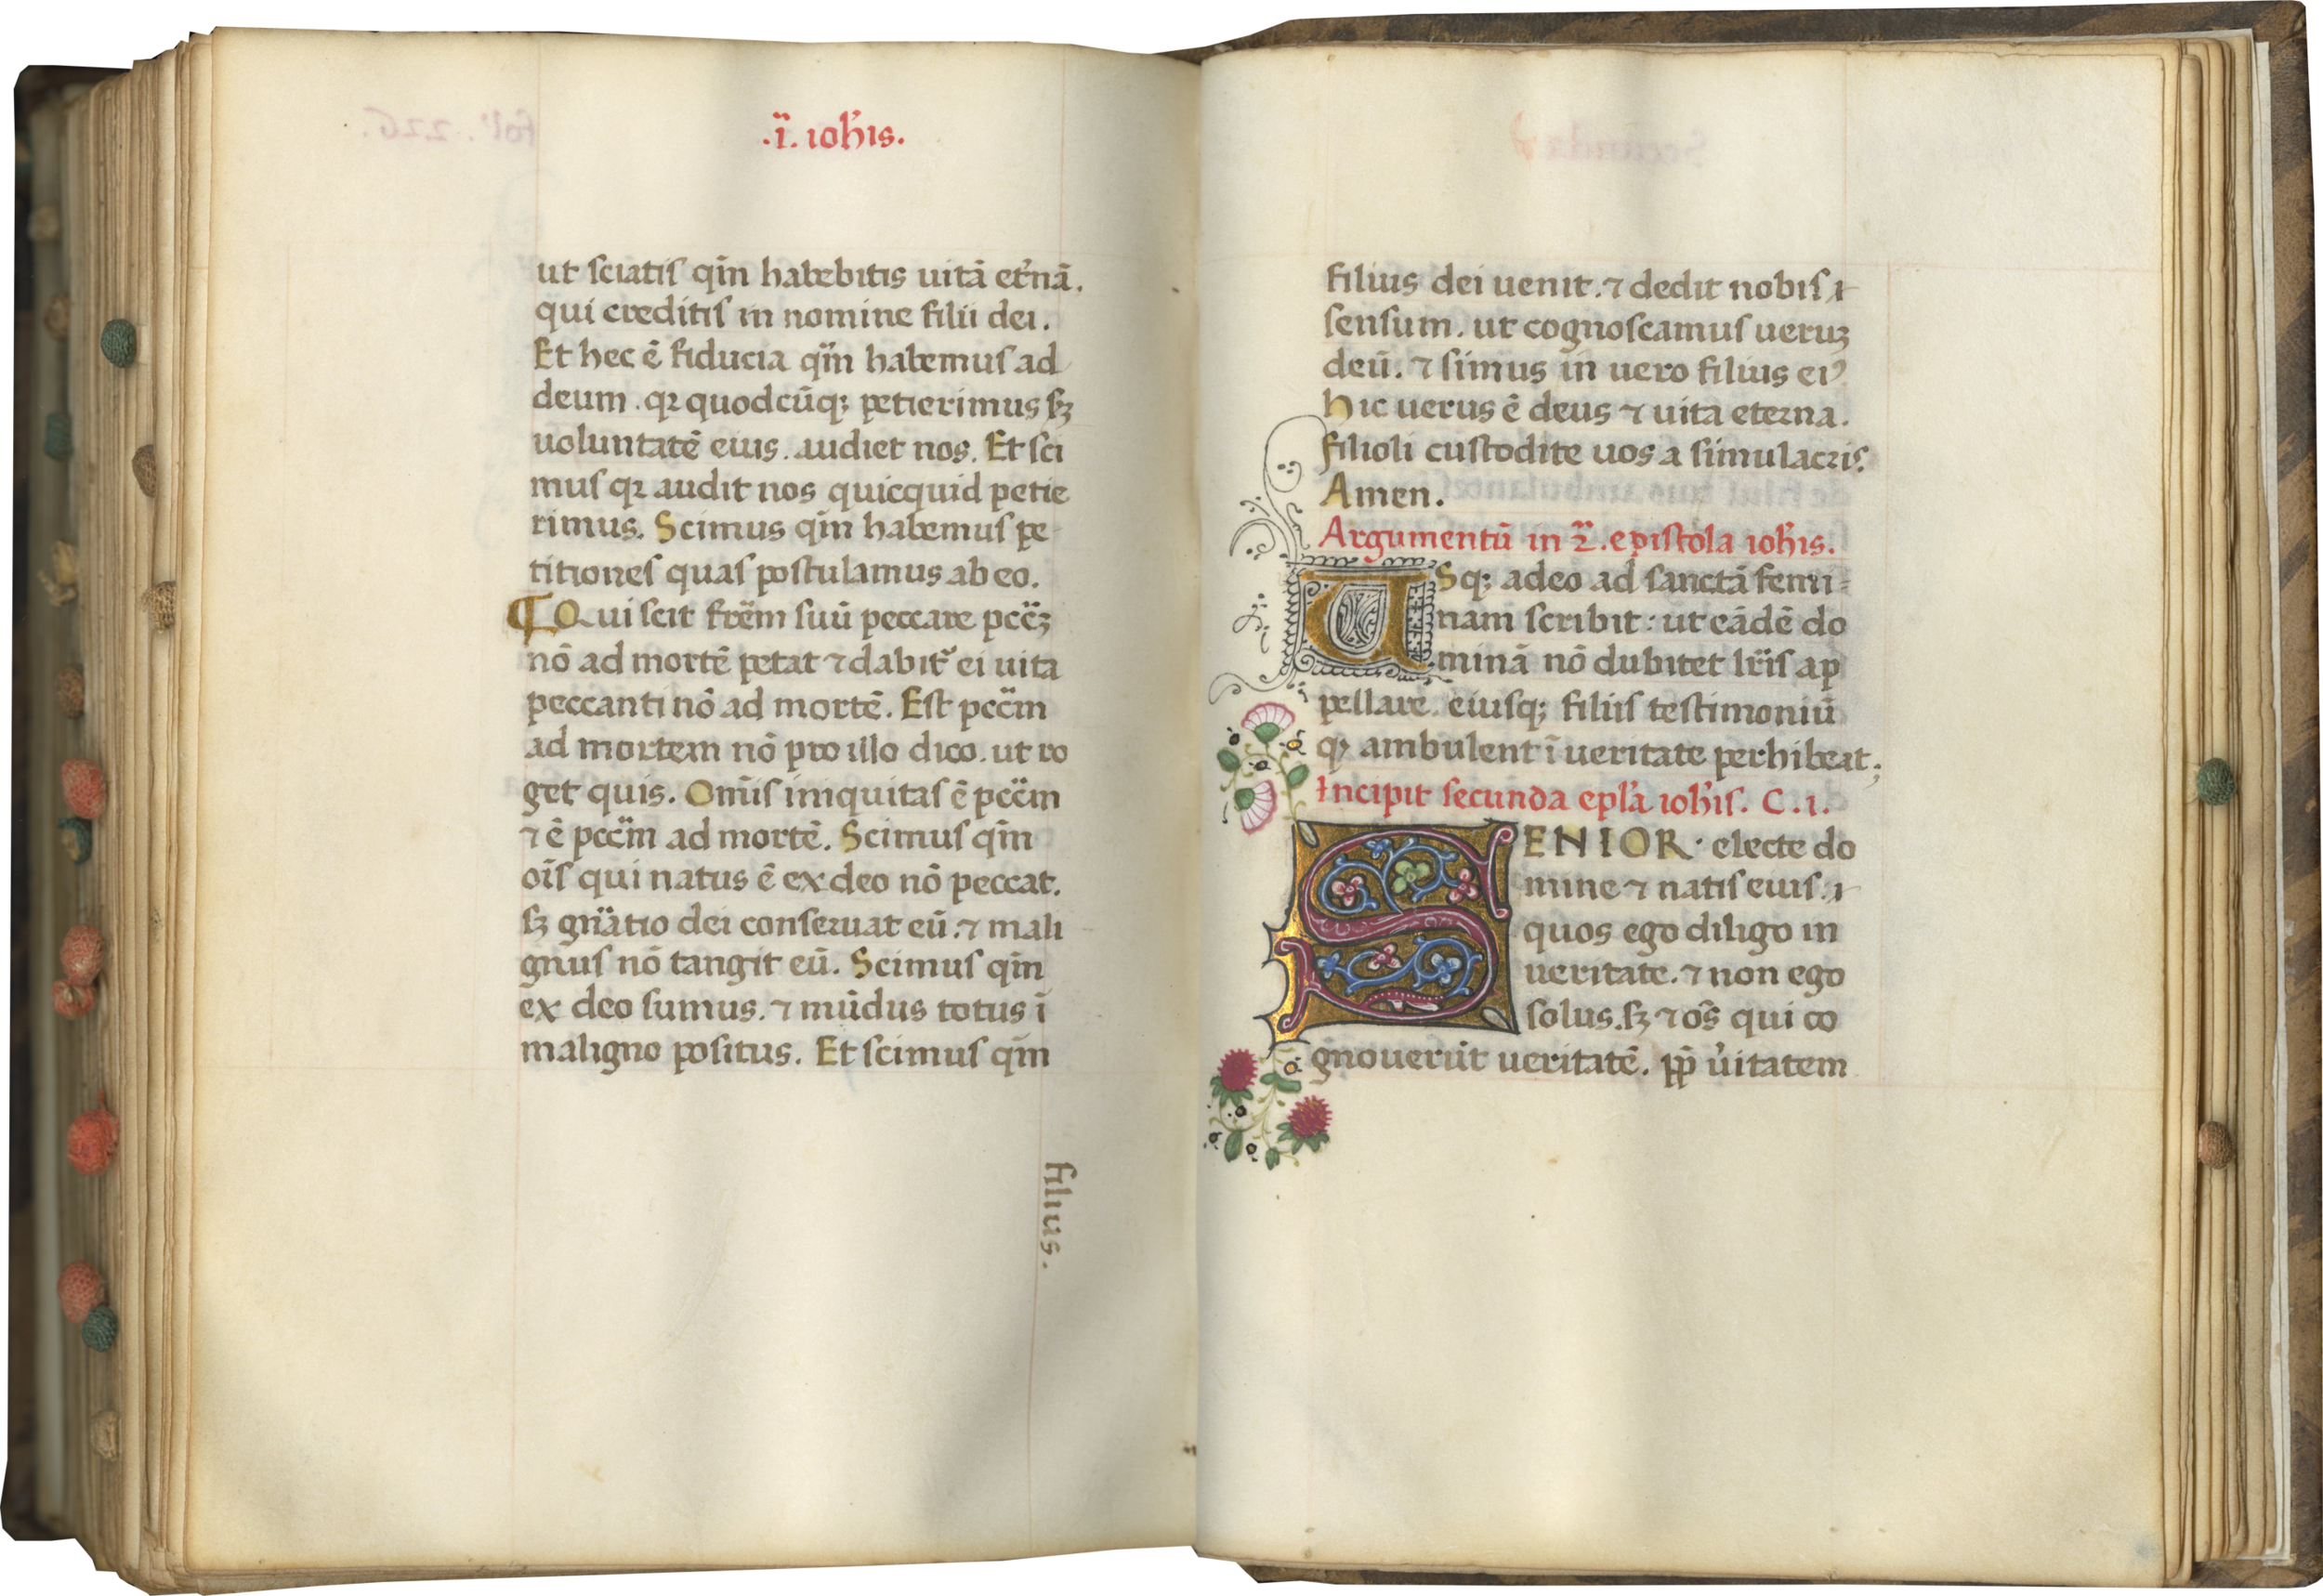 .ı̈. ıoh̄ıs.
ut ſciatiſ qm̄ habebitis uitā et̄nā.
qui creditiſ in nomine filii dei.
Et hec ē fiducia qm̄ habemuſ ad
deum. qꝛ quodcūqꝫ petierimus ſꝫ
uoluntatē eius. audiet nos. Et ſci
muſ qꝛ audit nos quicquid petie
rimus. Scimus qm̄ habemuſ pe
titioneſ quaſ poſtulamus ab eo.
¶ Qui ſcit fr̄em ſuū peccare pcc̄ꝫ
nō ad mortē petat ⁊ dabit᷑ ei uita
peccanti nō ad mortē. Eſt pcc̄m
ad mortem nō pro illo dico. ut ro
get quis. Om̄iſ iniquitaſ ē pcc̄m
⁊ ē pcc̄m ad mortē. Scimuſ qm̄
oīſ qui natus ē ex deo nō peccat.
ſꝫ gn̄atio dei conſeruat eū. ⁊ mali
gnuſ nō tangit eū. Scimuſ qm̄
ex deo ſumus. ⁊ mūdus totus ī
maligno poſitus. Et ſcimuſ qm̄
filius.
filius dei uenit. ⁊ dedit nobiſ
ſenſum. ut cognoſcamuſ ueruꝫ
deū. ⁊ ſimus in uero filius eiꝰ
hic uerus ē deus ⁊ uita eterna.
filioli cuſtodite uos a ſimulacriſ.
Amen.
Argumentū in .2̄. epiſtola ıoh̄ıs.
USqꝫ adeo ad ſanctā femi-
nam ſcribit: ut eādē do
minā nō dubitet lr̄iſ ap
pellare. eiuſqꝫ filiiſ teſtimoniū
qꝫ ambulent ī ueritate perhibeat;
Incipit ſecunda epl̄a ioh̄iſ. C. i.
SENIOR electe do
mine ⁊ natiſ eiuſ.
quos ego diligo in
ueritate. ⁊ non ego
ſolus. ſꝫ ⁊ oēſ qui co
gnouerūt ueritatē. pp̄ u̓itatem